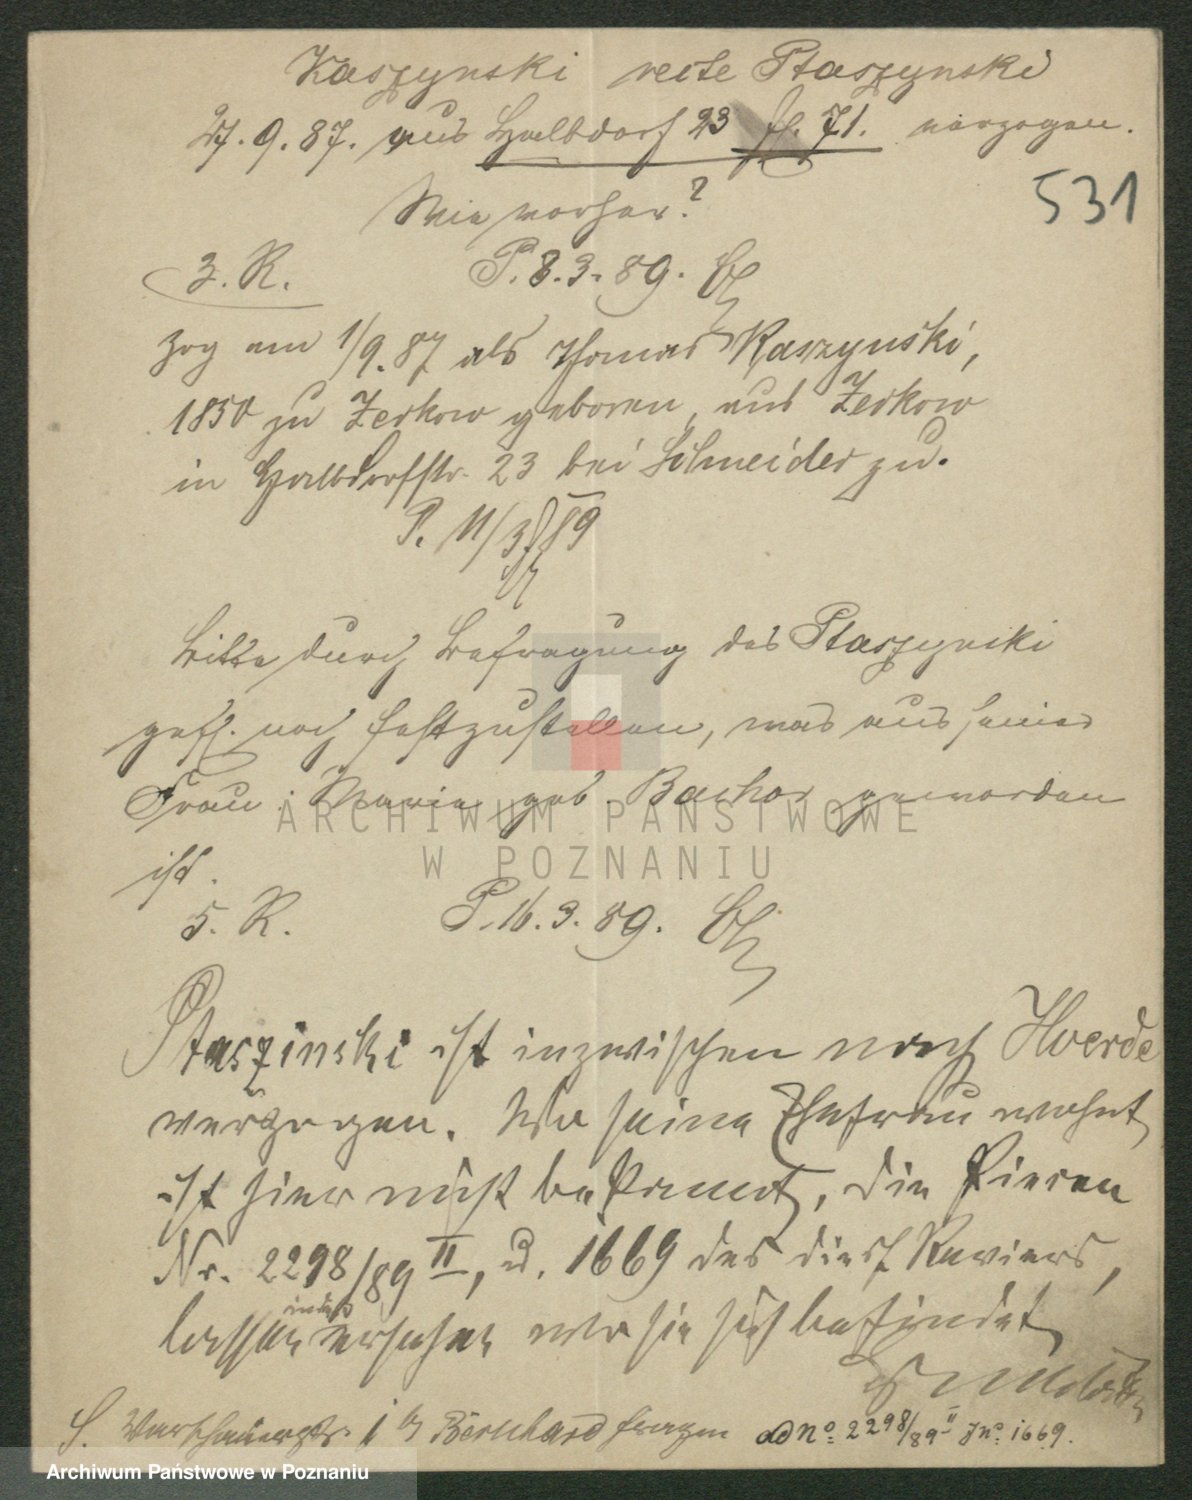 Kaszynski recte Ptaszynski
27.9.87. aus Halbdorf 23 71. verzogen.
531
Wie vorher?
3. R. P. 8.3.89.
zog am 1/9.87 als Thomas Kaszynski,
1850 zu Zerkow geboren, aus Zerkow
in Halbdorfstr. 23 bei Schneider zu.
P. 11/3 89
Bitte durch Befragung des Ptaszynski
gefl. noch festzustellen, was aus seiner
Frau Maria geb. Bachor geworden
ist.
5. R. P. 16.3.89.
Ptaszinski ist inzwischen nach Hoerde
verzogen. Wo seine Ehefrau wohnt
ist hier nicht bekannt, die
Nr. 2298/89 II, u. 1669 des dies. Reviers,
lassen nicht ersehen wo sie sich befindet
Bernhard fragen ad No. 2298/89 II J No. 1669.
ARCHIWUM PAŃSTWOWE
W POZNANIU
Archiwum Państwowe w Poznaniu